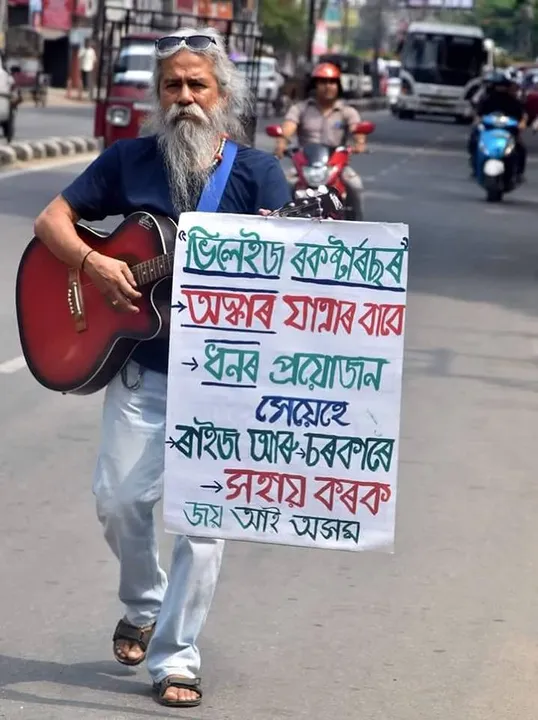 "ভিলেইজ ৰকষ্টাৰছৰ"
→ অস্কাৰ যাত্ৰাৰ বাবে
→ ধনৰ প্ৰয়োজন
সেয়েহে
→ ৰাইজ আৰু → চৰকাৰে
→ সহায় কৰক
জয় আই অসম